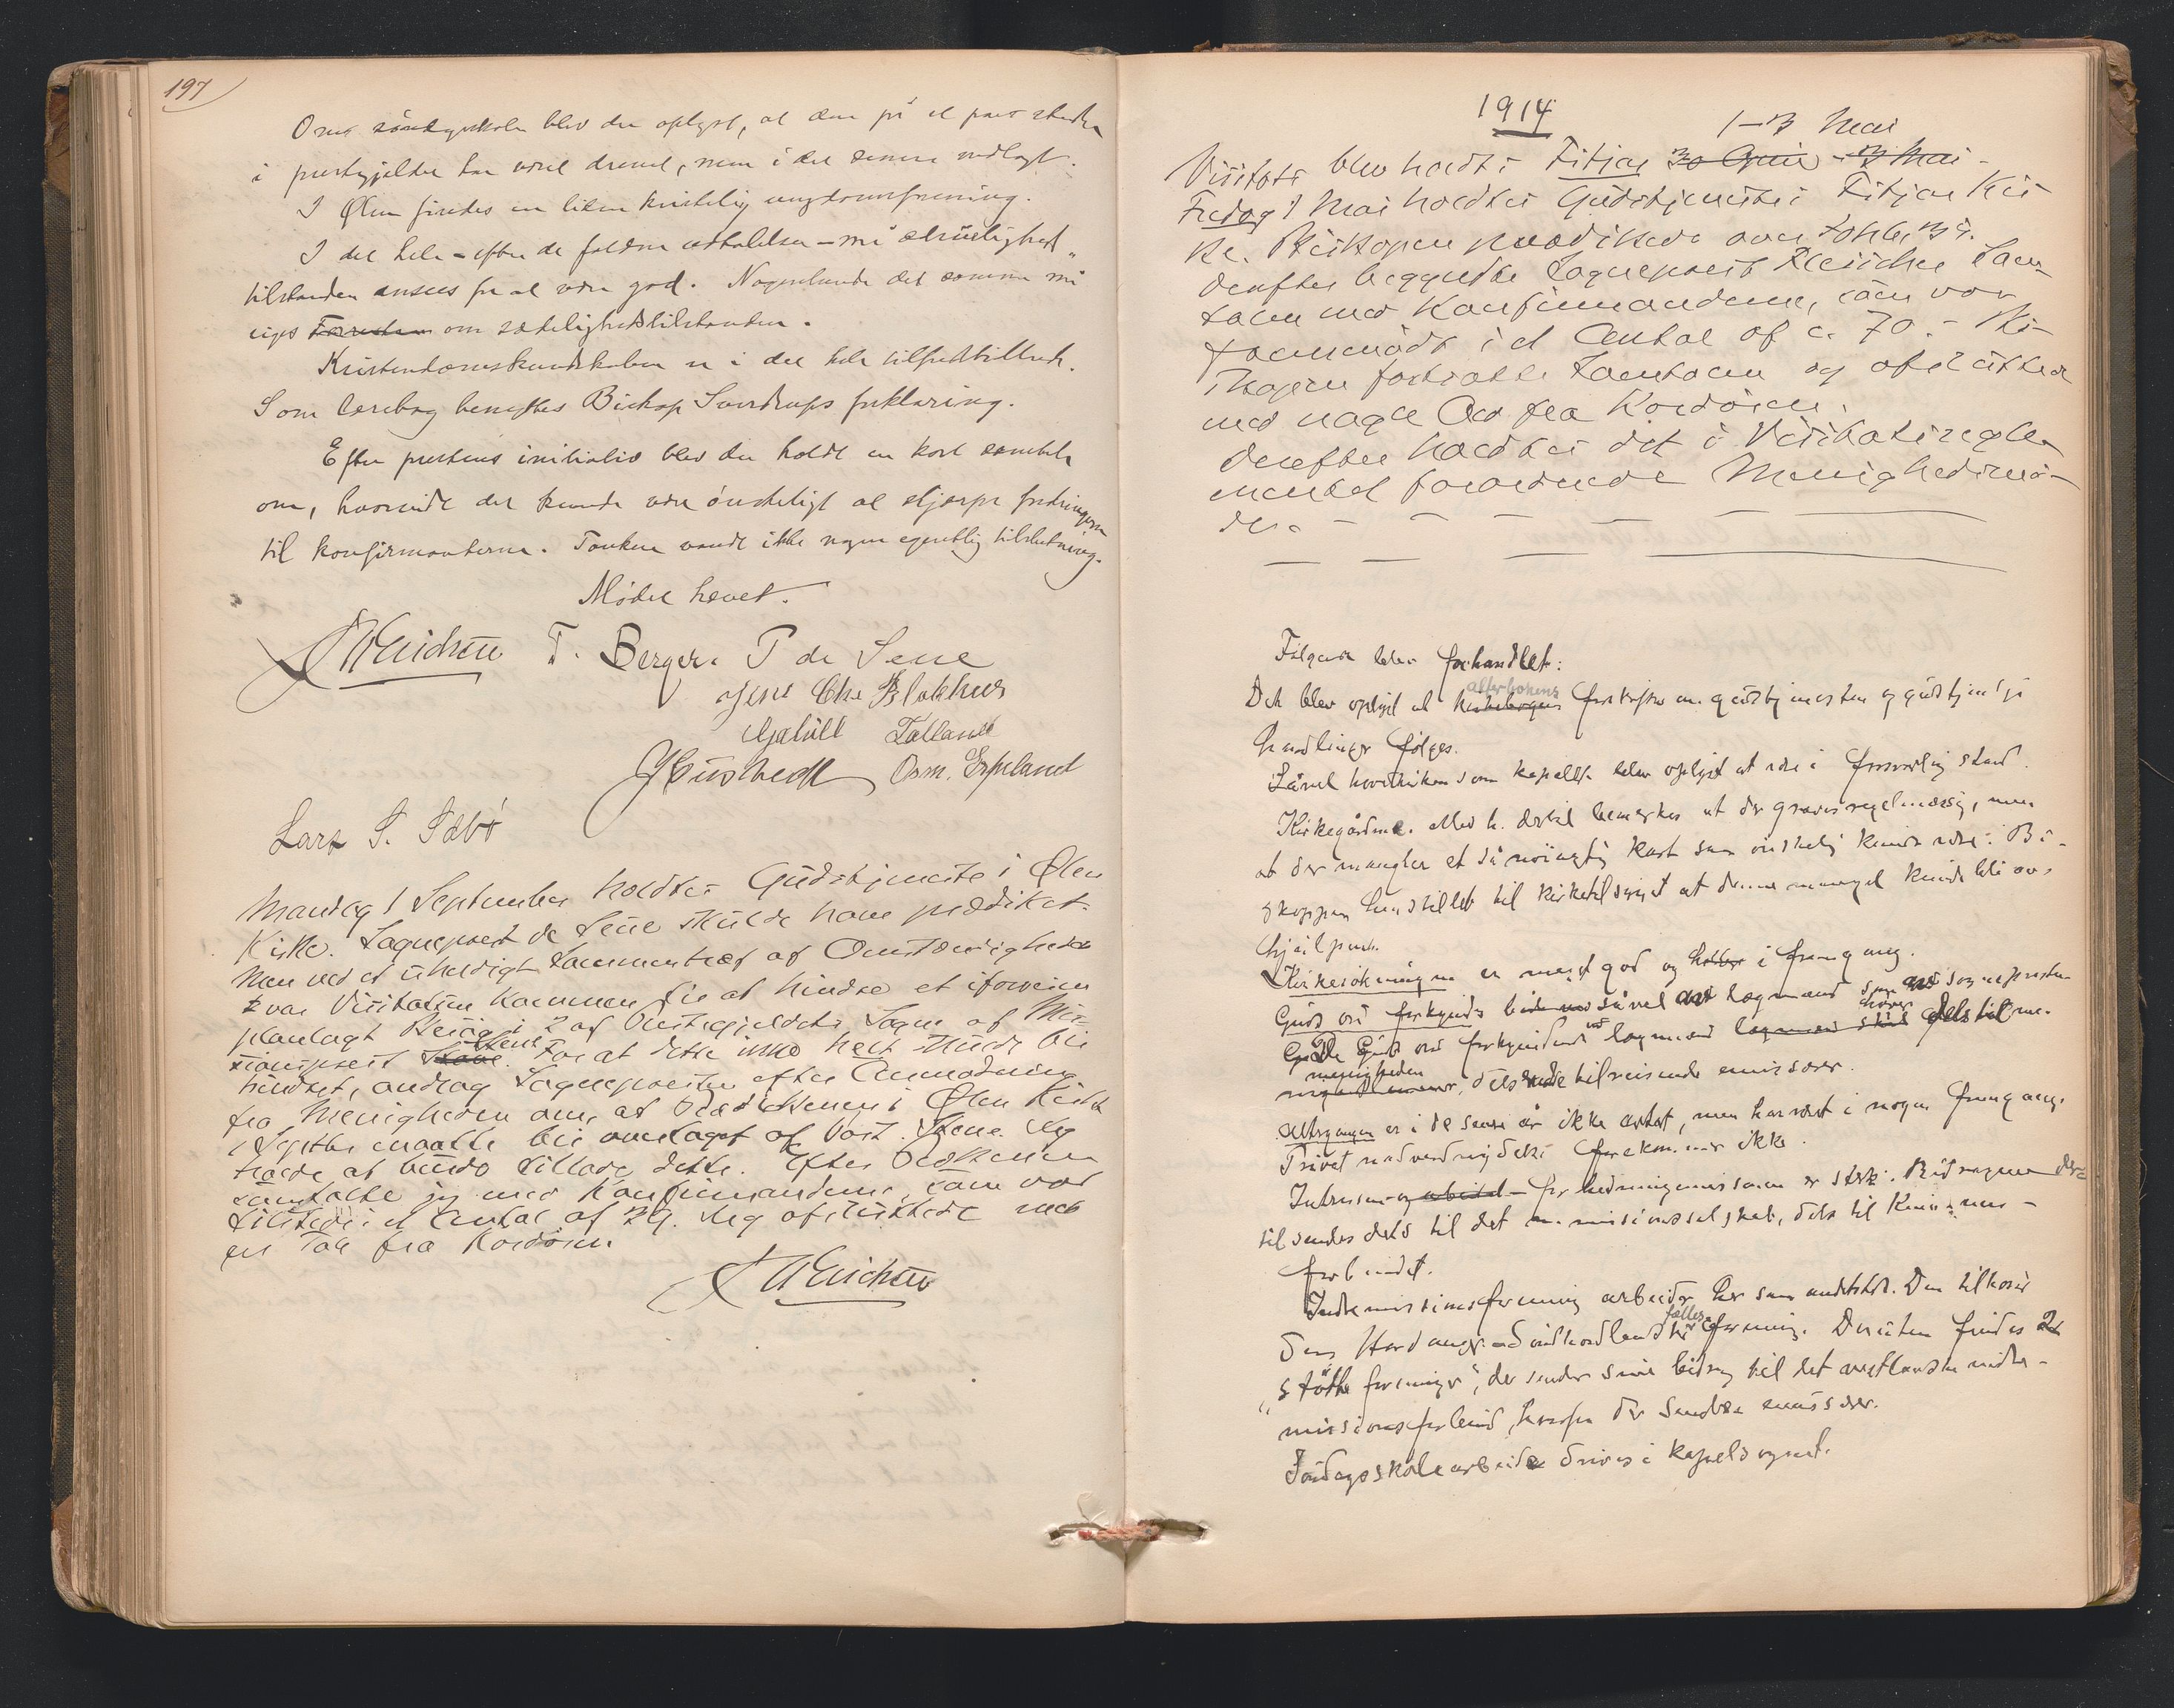 197
Om søndagsskolen blev der oplyst, at den på et pars steder
i prestegjeldet har været drevet, men i det senere nedlagt.
I Ølen findes en liten kristelig ungdomsforening.
I det hele – efter de faldne udtalelser – må ædruelighets
tilstanden ansees for at være god. Nogenlunde det samme må
siges om sædelighedstilstanden.
Kristendomskundskaben er i det hele tilfredsstillende.
Som lærebog benyttes Biskop Sverdrups forklaring.
Efter prestens initiativ blev der holdt en kort samtale
om, hvorvidt det kunde være ønskeligt at skjærpe fordringerne
til konfirmanterne. Tanken vandt ikke nogen egentlig tilslutning.
Mødet hævet.
J W Erichsen T. Berger. P de Seue
Jens Chr Blokhus
Tolland
Osm. Espeland
Lars S. Sæbø
Mandag 1 September holdtes Gudstjeneste i Ølen
Kirke. Sognepræst de Seue skulde have prædiket.
Men ved et uheldigt Sammentræf af Omstændigheder
var Visitatsen kommen til at hindre et iforveien
planlagt Besøg i 2 af Præstegjeldets Sogne af Mis-
sionsprest For at dette ikke helt skulde bli
hindret, androg Sognepresten efter Anmodning
fra Menigheden om, at Prædikenen i Ølen Kirke
1 Septbr maatte bli overtaget af Past. Jeg
troede at burde tillade dette. Efter Prædikenen
samtalte jeg med Konfirmanderne, som var
tilstede i et Antal af 29. Jeg afsluttede med
en Tale fra Kordøren.
J W Erichsen
1914
1–3 Mai
Visitats blev holdt i Fitjar 30 April – 3 Mai –
Fredag 1 Mai holdtes Gudstjeneste i Fitjar Kir-
ke. Biskopen prædikede over
Derefter begyndte Sogneprest Sam-
talen med Konfirmanderne, som var
fremmødt i et Antal af c. 70. – Bi-
skopen fortsatte Samtalen og afsluttede
med nogle Ord fra Kordøren.
Derefter holdtes det i Visitatsregle-
mentet forordnede Menighedsmø-
de. –
Følgende blev forhandlet:
Det blev oplyst at alterbokens forskrifter om gudstjenesten og gudstjenstlige
handlinger følges.
Såvel hovedkirken som kapellet blev oplyst at være i forsvarlig stand.
Kirkegårdene. Med h. dertil bemerkes at der graves regelmæssig, men
at der mangler et så nøiagtig kart som ønskelig kunde være. Bi-
skoppen henstillet til kirketilsynet at denne mangel kunde bli av-
hjulpen.
Kirkesøkningen er meget god og i fremgang.
Guds ord forkyndes såvel av lægmænd som av sogneprsten
De Guds ord forkyndende lægmænd hører dels til me-
nigheden, dels tilreisende emissærer.
Altergangen er i de senere år ikke øket, men har været i nogen fremgang.
Privat nadverdnydelse forekommer ikke.
Interessen for hedningemissionen er sterk. Bidragene der-
til sendes dels til det n. missionsselskab, dels til Kinamis-
forbundet.
Indremissionsforening arbeider her som andetsteds. Den tilhører
den Hardanger–Søndhordlandske fællesforening. Desuten findes 2
"støtteforeninger", der sender sine bidrag til det vestlandske indre-
missionsforbund, hvorfra der sendes emissærer.
Søndagsskolearbeide drives i kapelsognet.